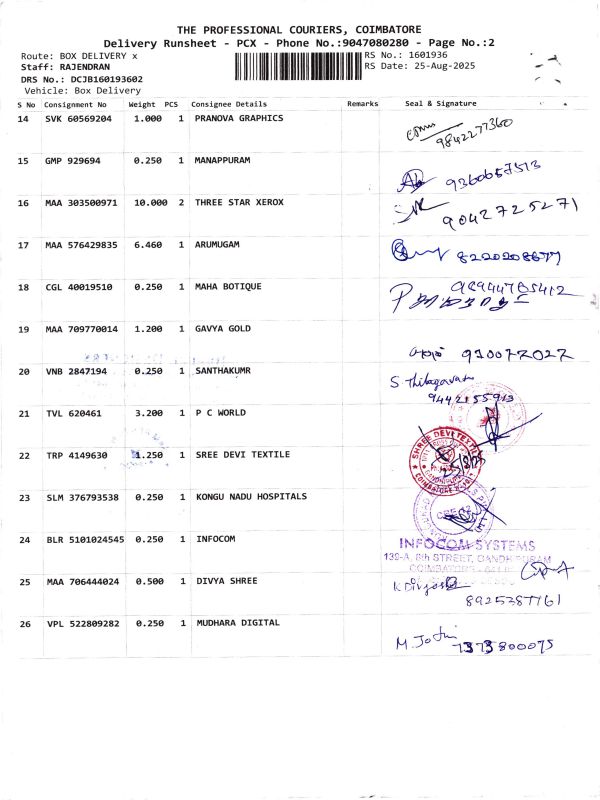 THE PROFESSIONAL COURIERS, COIMBATORE
Delivery Runsheet - PCX - Phone No.:9047080280 - Page No.:2
Route: BOX DELIVERY x RS No.: 1601936
Staff: RAJENDRAN RS Date: 25-Aug-2025
DRS No.: DCJB160193602
Vehicle: Box Delivery
S No Consignment No Weight PCS Consignee Details Remarks Seal & Signature
14 SVK 60569204 1.000 1 PRANOVA GRAPHICS
9842277360
15 GMP 929694 0.250 1 MANAPPURAM
9360657513
16 MAA 303500971 10.000 2 THREE STAR XEROX
9042725271
17 MAA 576429835 6.460 1 ARUMUGAM
8220208677
18 CGL 40019510 0.250 1 MAHA BOTIQUE
9894785412
19 MAA 709770014 1.200 1 GAVYA GOLD
910072027
20 VNB 2847194 0.250 1 SANTHAKUMR
S. Thilagavathi
9442155913
21 TVL 620461 3.200 1 P C WORLD
22 TRP 4149630 1.250 1 SREE DEVI TEXTILE
SHREE DEVI TEXTILE
COIMBATORE
23 SLM 376793538 0.250 1 KONGU NADU HOSPITALS
24 BLR 5101024545 0.250 1 INFOCOM
INFOCOM SYSTEMS
139-A, 8th STREET, GANDHIPURAM
COIMBATORE
25 MAA 706444024 0.500 1 DIVYA SHREE
8925387761
26 VPL 522809282 0.250 1 MUDHARA DIGITAL
M. Jothi
7373800075